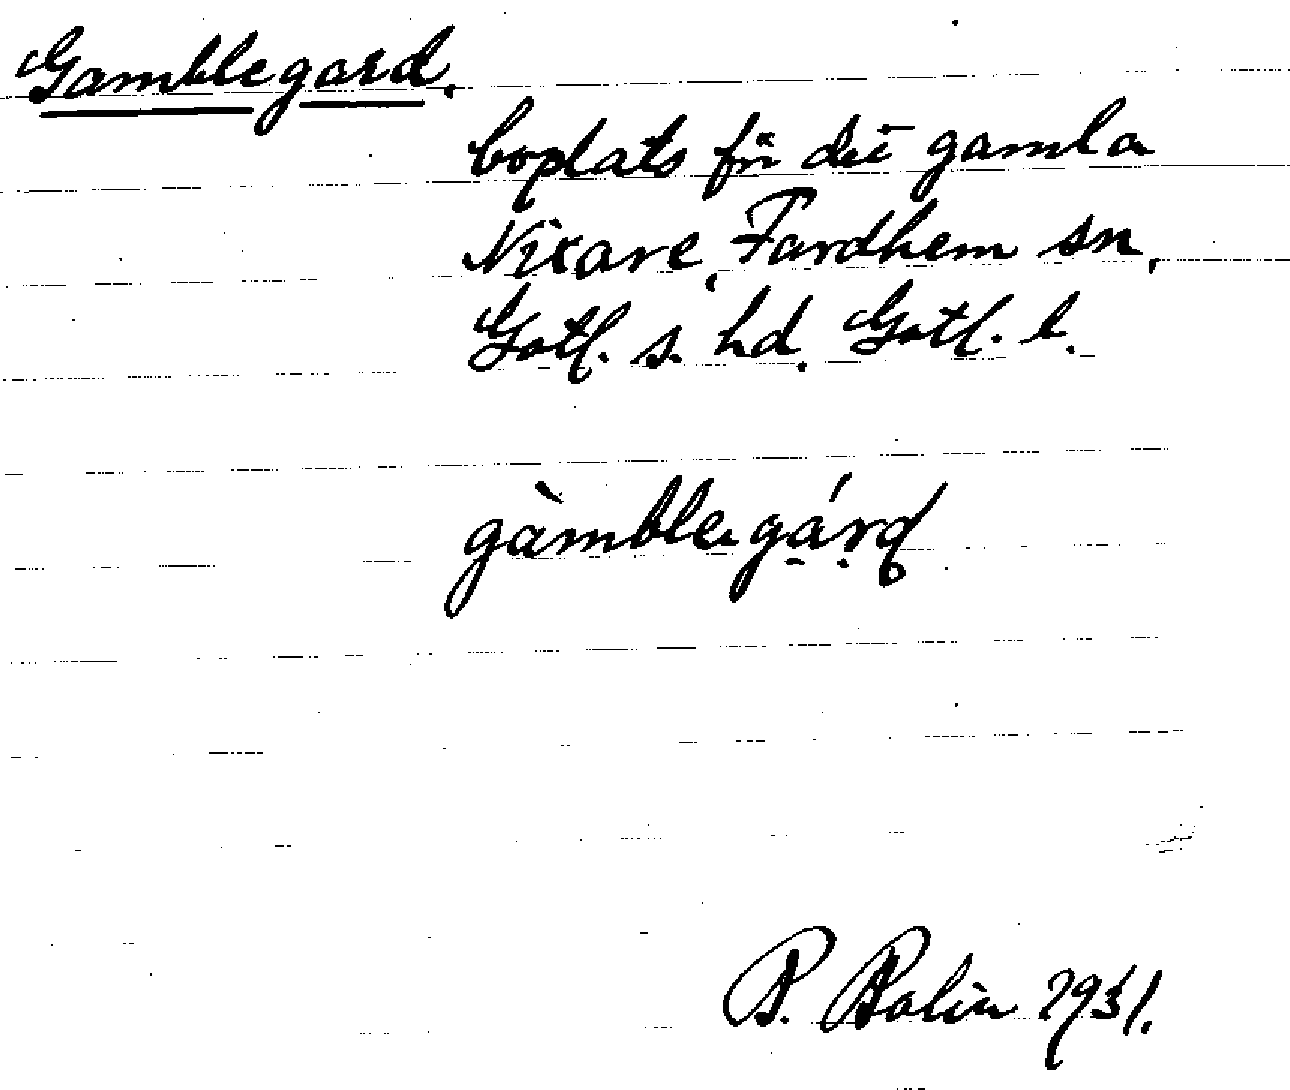 Gamblegard.
boplats för det gamla
Nixare, Fardhem sn,
Gotl. s. hd. Gotl. l.
gàmblegárd
B. Bolin 1931.